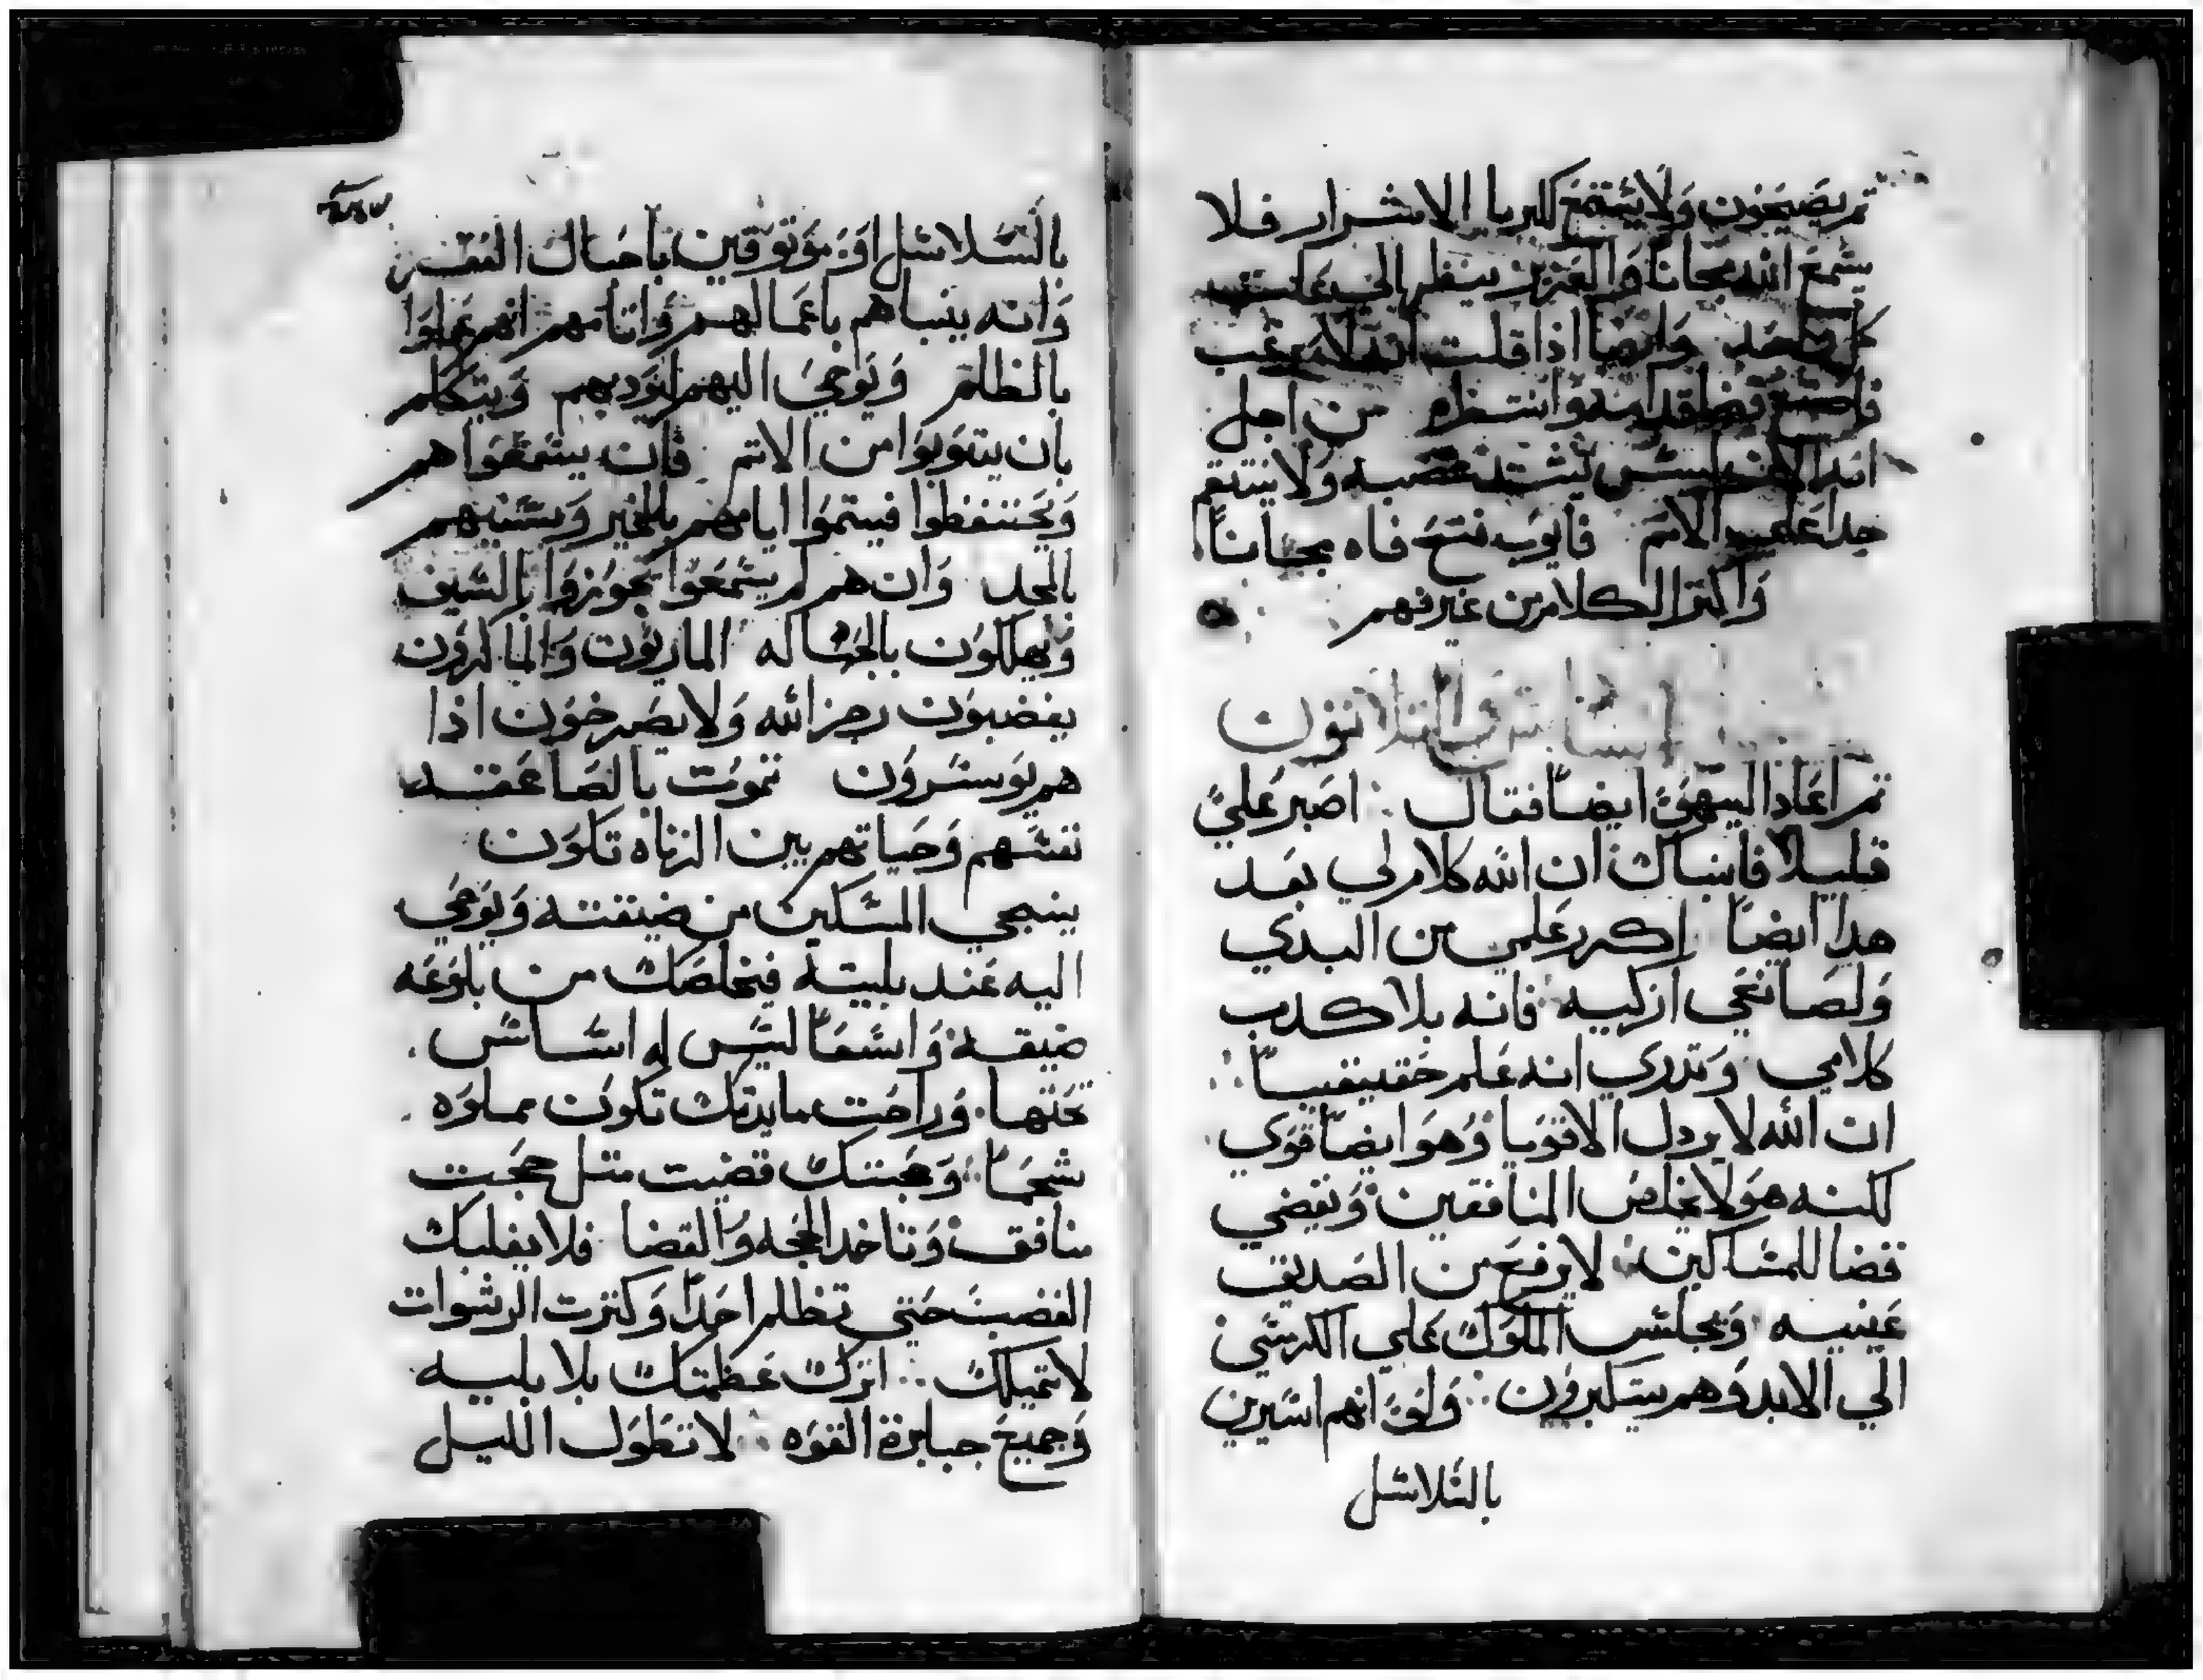 ثم يصيحون ولا يستمع لكبريا الاشرار فلا
يسمع الله مجاناً والعزيز ينظر الي
وايضاً اذا قلت انه لا يرغب
وانتظره من اجل
انه الان ليس يشتد غضبه ولا ينتقم
جداً علي الاتم فايوب فتح فاه مجاناً
واكثر الكلام من غير فهم
السادس والثلاثون
ثم اعاد اليهو ايضاً فقال اصبر علي
قليلاً فانباك ان لله كلام لي بعد
هدا ايضاً اكرر علمي من البدي
ولصانعي ازكيه فانه بلا كدب
كلامي وتدري انه علم حقيقيياً
ان الله لا يردل الاقويا وهو ايضاً قوي
لكنه هو لا يخلص المنافقين ونقضي
قضا للمساكين لا يرفع من الصديق
عينيه ويجلس الملوك علي الكرسي
الي الابد وهم يستكبرون ولو انهم اسيرين
بالسلاسل
بالسلاسل او موتوقين باحبال الفقر
وانه ينباهم باعمالهم واتامهم انهم عملوا
بالظلم ويوحي اليهم ليوديهم ويتكلم
بان يتوبوا من الاتم فان يسمعوا هم
ويحتفظوا فيتموا ايامهم بالخير وسنيهم
بالمجد وان هم لم يسمعوا يجوزوا بالسيف
ويهلكون بالجهاله الماريون والماكرون
يغضبون رجز الله ولا يصرخون اذا
هم يوسرون تموت بالصاعقه
نفسهم وحياتهم بين الزناه تكون
ينجي المسكين من ضيقته ويوحي
اليه عند بليته فيخلصك من بلوعه
ضيقه واسعاً ليس له اساس
تحتها وراحت مايدتك تكون مملوه
شحماً وحجتك قضيت متل حجت
منافق وتاخد الحجه والقضا فلا يغلبك
الغضب حتي تظلم احداً وكترت الرشوات
لا تميلك اترك عظمتك بلا بليه
وجميع جبابرة القوه لا تطول الليل